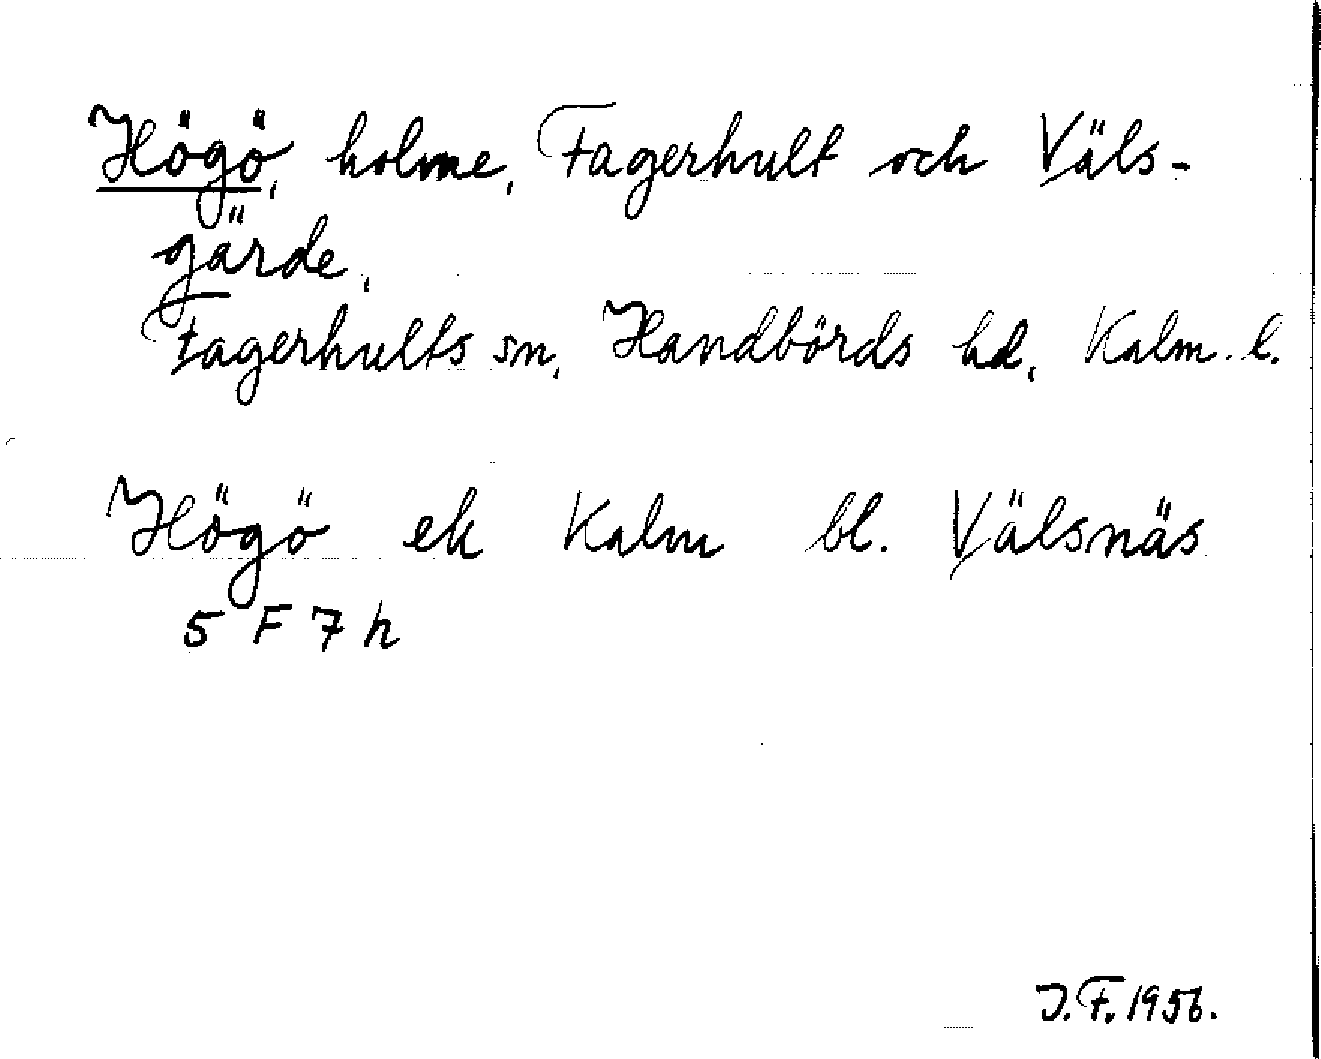 Högö, holme, Fagerhult och Väls-
gärde,
Fagerhults sn, Handbörds hd, Kalm. l.
Högö ek Kalm bl. Välsnäs
5 F 7 h
J. F. 1956.